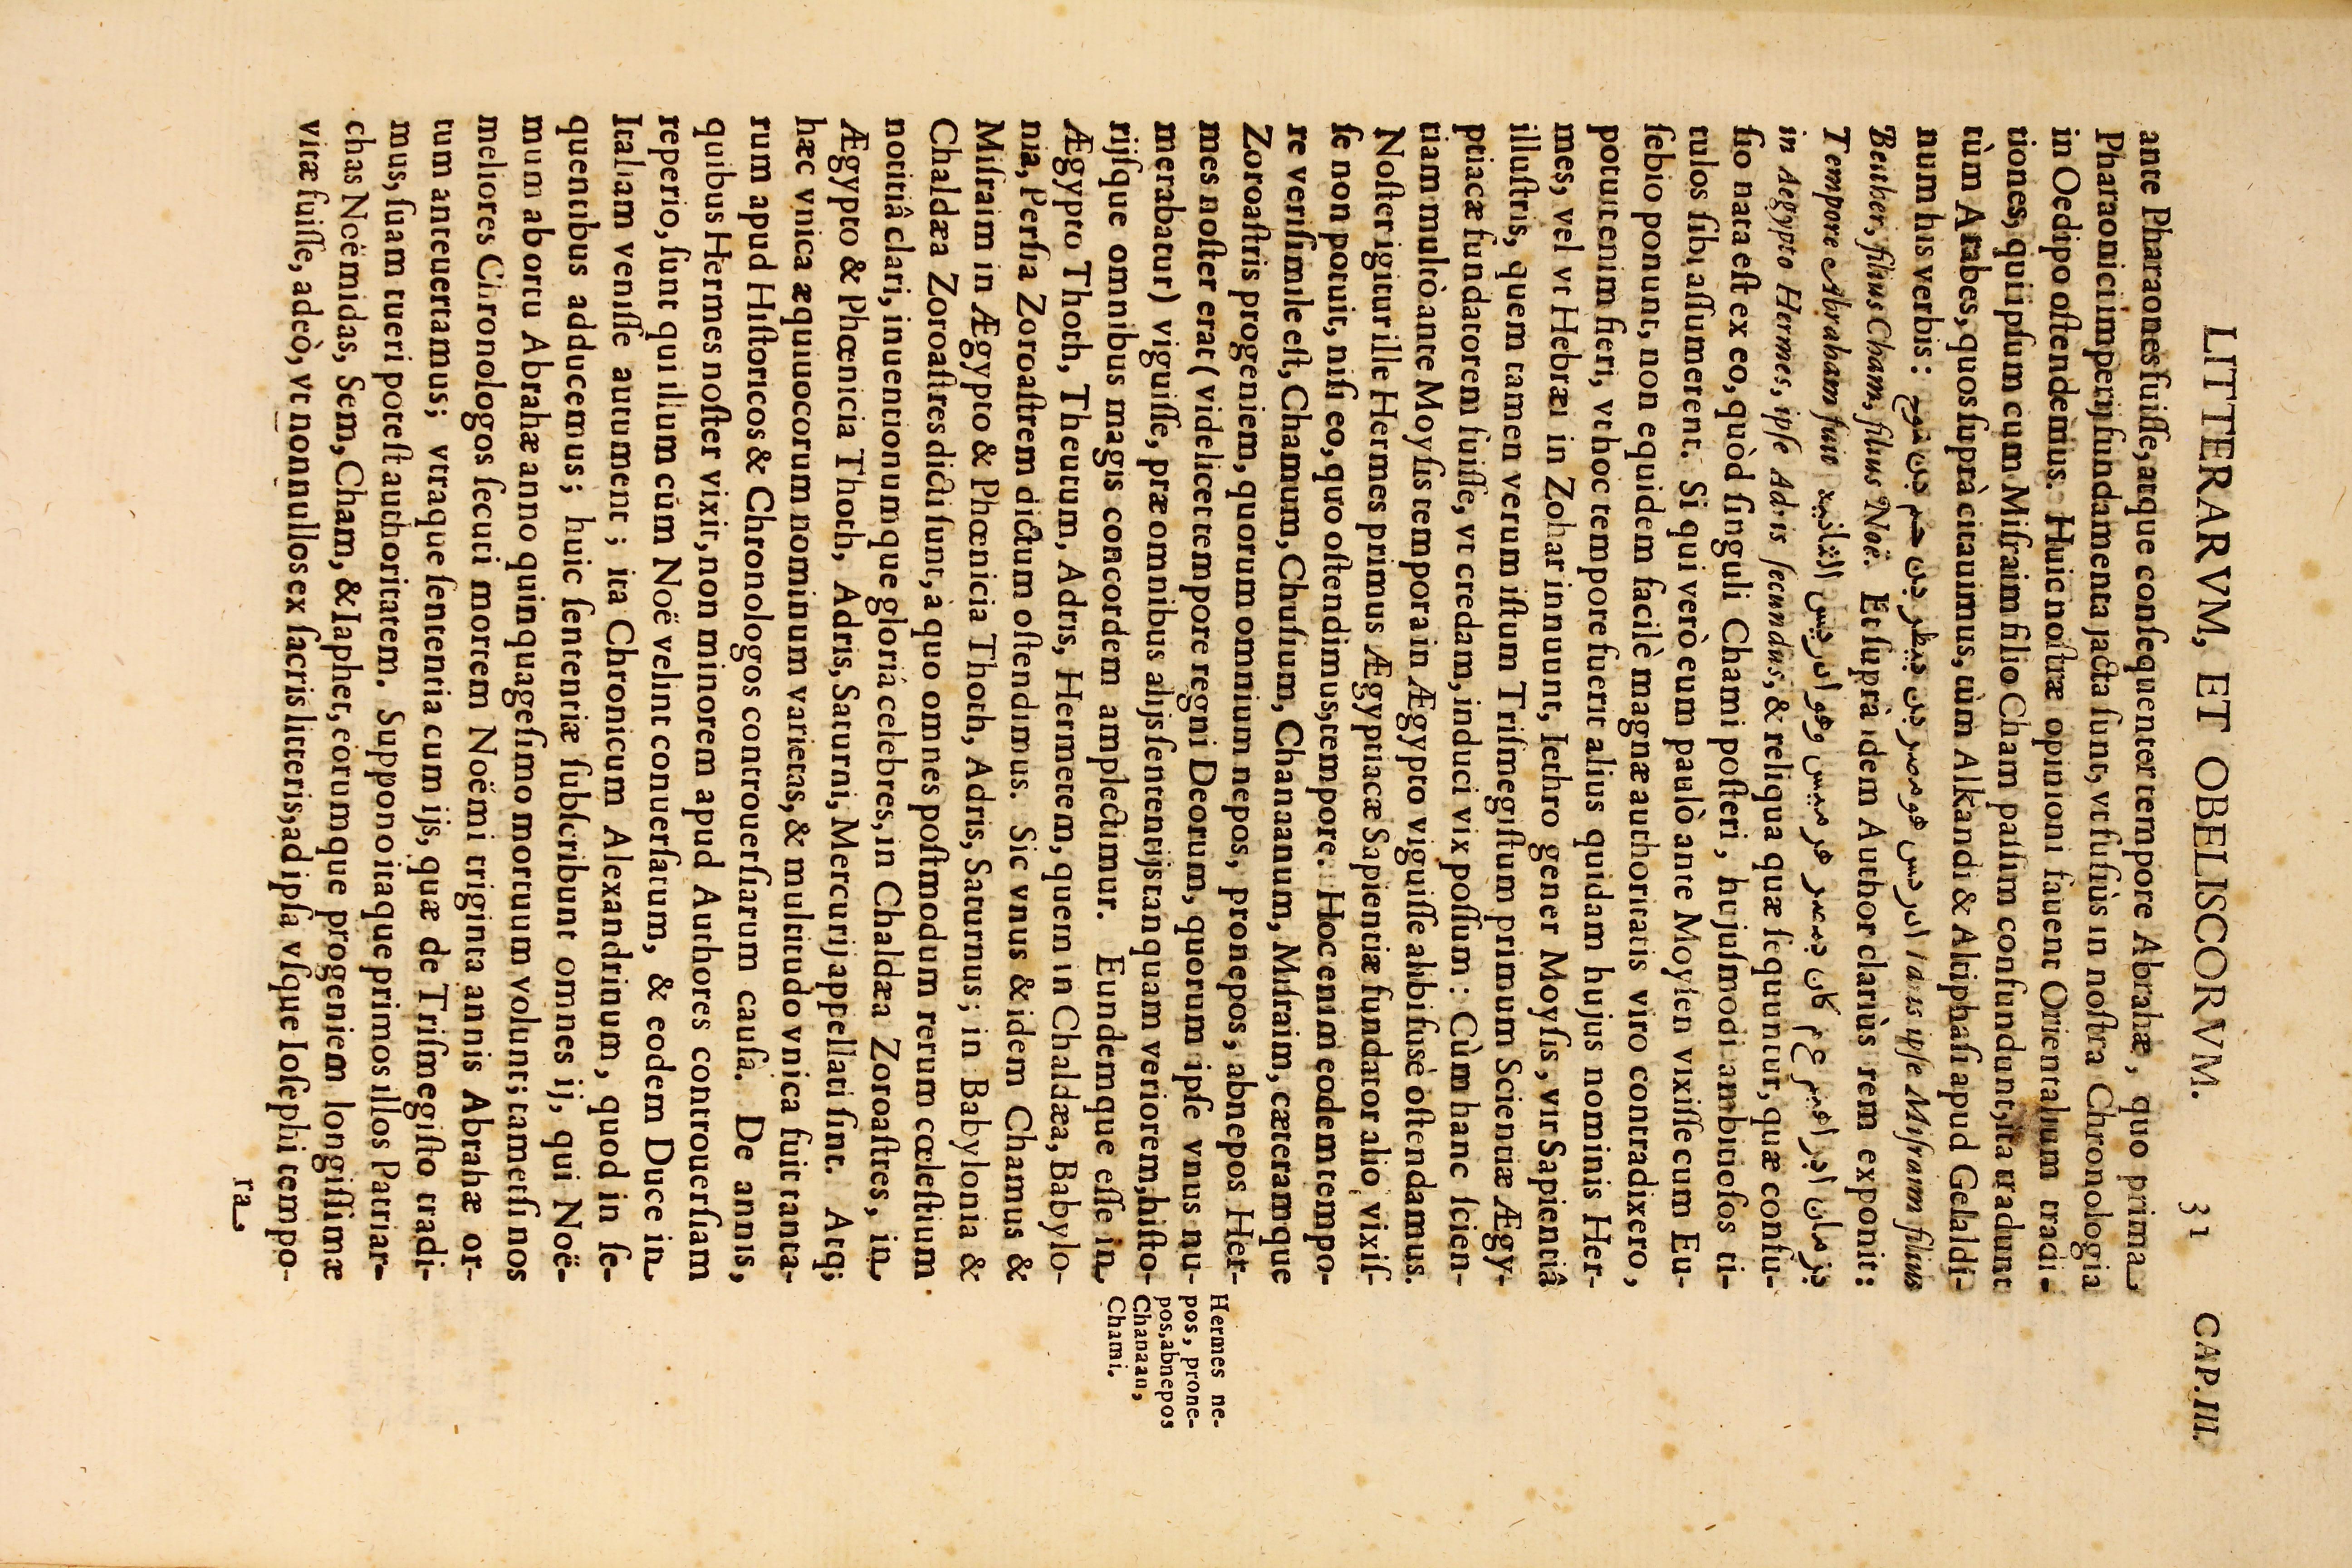 LITTERARVM, ET OBELISCORVM. 31 CAP.III.
ante Pharaones fuiſſe, atque conſequenter tempore Abrahæ, quo prima
Pharaonici imperij fundamenta jacta ſunt, vt fuſiùs in noſtra Chronologia
in Oedipo oſtendemus. Huic noſtræ opinioni fauent Orientalium tradi-
tiones, qui ipſum cum Miſraim filio Cham paſſim confundunt, ita tradunt
tùm Arabes, quos ſuprà citauimus, tùm Alkandi & Altiphaſi apud Gelaldi-
num his verbis: ادرس هو مصر بن بيظر بن حم بن نوح Idris ipſe Miſraim filius
Beither, filius Cham, filius Noë. Et ſuprà idem Author clariùs rem exponit:
Tempore Abraham fuit بزمان ابراهيم ع م كان بمصر هرميس وهو ادريس الثانيه
in Aegypto Hermes, ipſe Adris ſecundus, & reliqua quæ ſequuntur, quæ confu-
ſio nata eſt ex eo, quòd ſinguli Chami poſteri, hujuſmodi ambitioſos ti-
tulos ſibi aſſumerent. Si qui verò eum paulò ante Moyſen vixiſſe cum Eu-
ſebio ponunt, non equidem facilè magnæ authoritatis viro contradixero,
potuit enim fieri, vt hoc tempore fuerit alius quidam hujus nominis Her-
mes, vel vt Hebræi in Zohar innuunt, Iethro gener Moyſis, vir Sapientiâ
illuſtris, quem tamen verum iſtum Triſmegiſtum primum Scientiæ Ægy-
ptiacæ fundatorem fuiſſe, vt credam, induci vix poſſum: Cùm hanc ſcien-
tiam multò ante Moyſis tempora in Ægypto viguiſſe alibi fusè oſtendamus.
Noſter igitur ille Hermes primus Ægyptiacæ Sapientiæ fundator alio vixiſ-
ſe non potuit, niſi eo, quo oſtendimus, tempore. Hoc enim eodem tempo-
re veriſimile eſt, Chamum, Chuſium, Chanaanum, Miſraim, cæteramque
Zoroaſtris progeniem, quorum omnium nepos, pronepos, abnepos Her-
mes noſter erat (videlicet tempore regni Deorum, quorum ipſe vnus nu-
merabatur) viguiſſe, præ omnibus alijs ſententijs tanquam veriorem, hiſto-
rijſque omnibus magis concordem amplectimur. Eundemque eſſe in
Ægypto Thoth, Theutum, Adris, Hermetem, quem in Chaldæa, Babylo-
nia, Perſia Zoroaſtrem dictum oſtendimus. Sic vnus & idem Chamus &
Miſraim in Ægypto & Phœnicia Thoth, Adris, Saturnus; in Babylonia &
Chaldæa Zoroaſtres dicti ſunt, à quo omnes poſtmodum rerum cœleſtium
notitiâ clari, inuentionumque gloriâ celebres, in Chaldæa Zoroaſtres, in
Ægypto & Phœnicia Thoth, Adris, Saturni, Mercurij appellati ſint. Atq;
hæc vnica æquiuocorum nominum varietas, & multitudo vnica fuit tanta-
rum apud Hiſtoricos & Chronologos controuerſiarum cauſa. De annis,
quibus Hermes noſter vixit, non minorem apud Authores controuerſiam
reperio, ſunt qui illum cùm Noë velint conuerſatum, & eodem Duce in
Italiam veniſſe autument; ita Chronicum Alexandrinum, quod in ſe-
quentibus adducemus; huic ſententiæ ſubſcribunt omnes ij, qui Noë-
mum ab ortu Abrahæ anno quinquageſimo mortuum volunt; tametſi nos
meliores Chronologos ſecuti mortem Noëmi triginta annis Abrahæ or-
tum anteuertamus; vtraque ſententia cum ijs, quæ de Triſmegiſto tradi-
mus, ſuam tueri poteſt authoritatem. Suppono itaque primos illos Patriar-
chas Noëmidas, Sem, Cham, & Iaphet, eorumque progeniem longiſſimæ
vitæ fuiſſe, adeò, vt nonnullos ex ſacris litteris, ad ipſa vſque Ioſephi tempo-
ra
Hermes ne-
pos, prone-
pos, abnepos
Chanaan,
Chami.